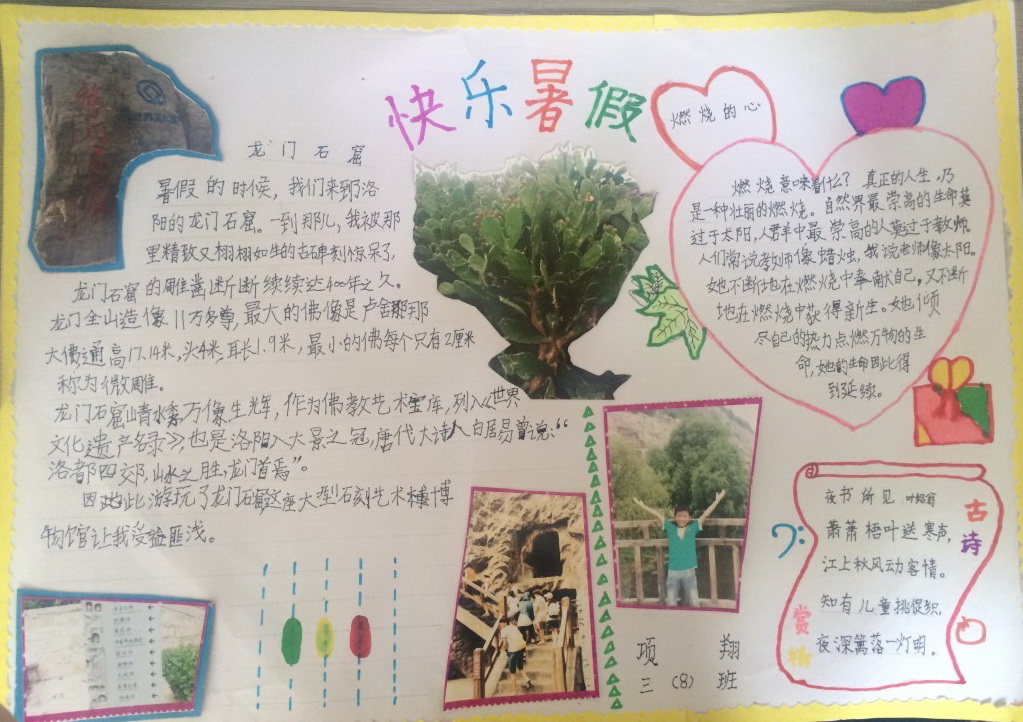 快乐暑假
龙门石窟
暑假的时候，我们来到洛
阳的龙门石窟。一到那儿，我被那
里精致又栩栩如生的古碑刻惊呆了，
龙门石窟的周隹凿断断续续达400年之久。
龙门全山造像11万多尊，最大的佛像是卢舍那
大佛，通高17.14米，头4米，耳长1.9米，最小的佛每个只有2厘米
称为微雕。
龙门石窟山青水秀万像生辉，作为佛教艺术宝库，列入《世界
文化遗产名录》也是洛阳八大景之冠，唐代大诗人白居易曾说：“
洛都四郊，山水之胜，龙门首焉”。
因此此游玩了龙门石窟这座大型石刻艺术博
物馆官让我受益匪浅。
燃烧的心
燃烧意味着什么？真正的人生，乃
是一种壮丽的燃烧。自然界最崇高的生命莫
过于太阳，人群中最崇高的人莫过于教师，
人们常说教师像蜡烛，我说老师像太阳。
她不断地在燃烧中奉献自己，又不断
地在燃烧中获得新生。她倾
尽自己的热力点燃万物的生
命，她的生命因此得
到延续。
古诗
夜书所见 叶绍翁
萧萧梧叶送寒声，
江上秋风动客情。
知有儿童挑促织，
夜深篱落一灯明。
项翔
三（8）班